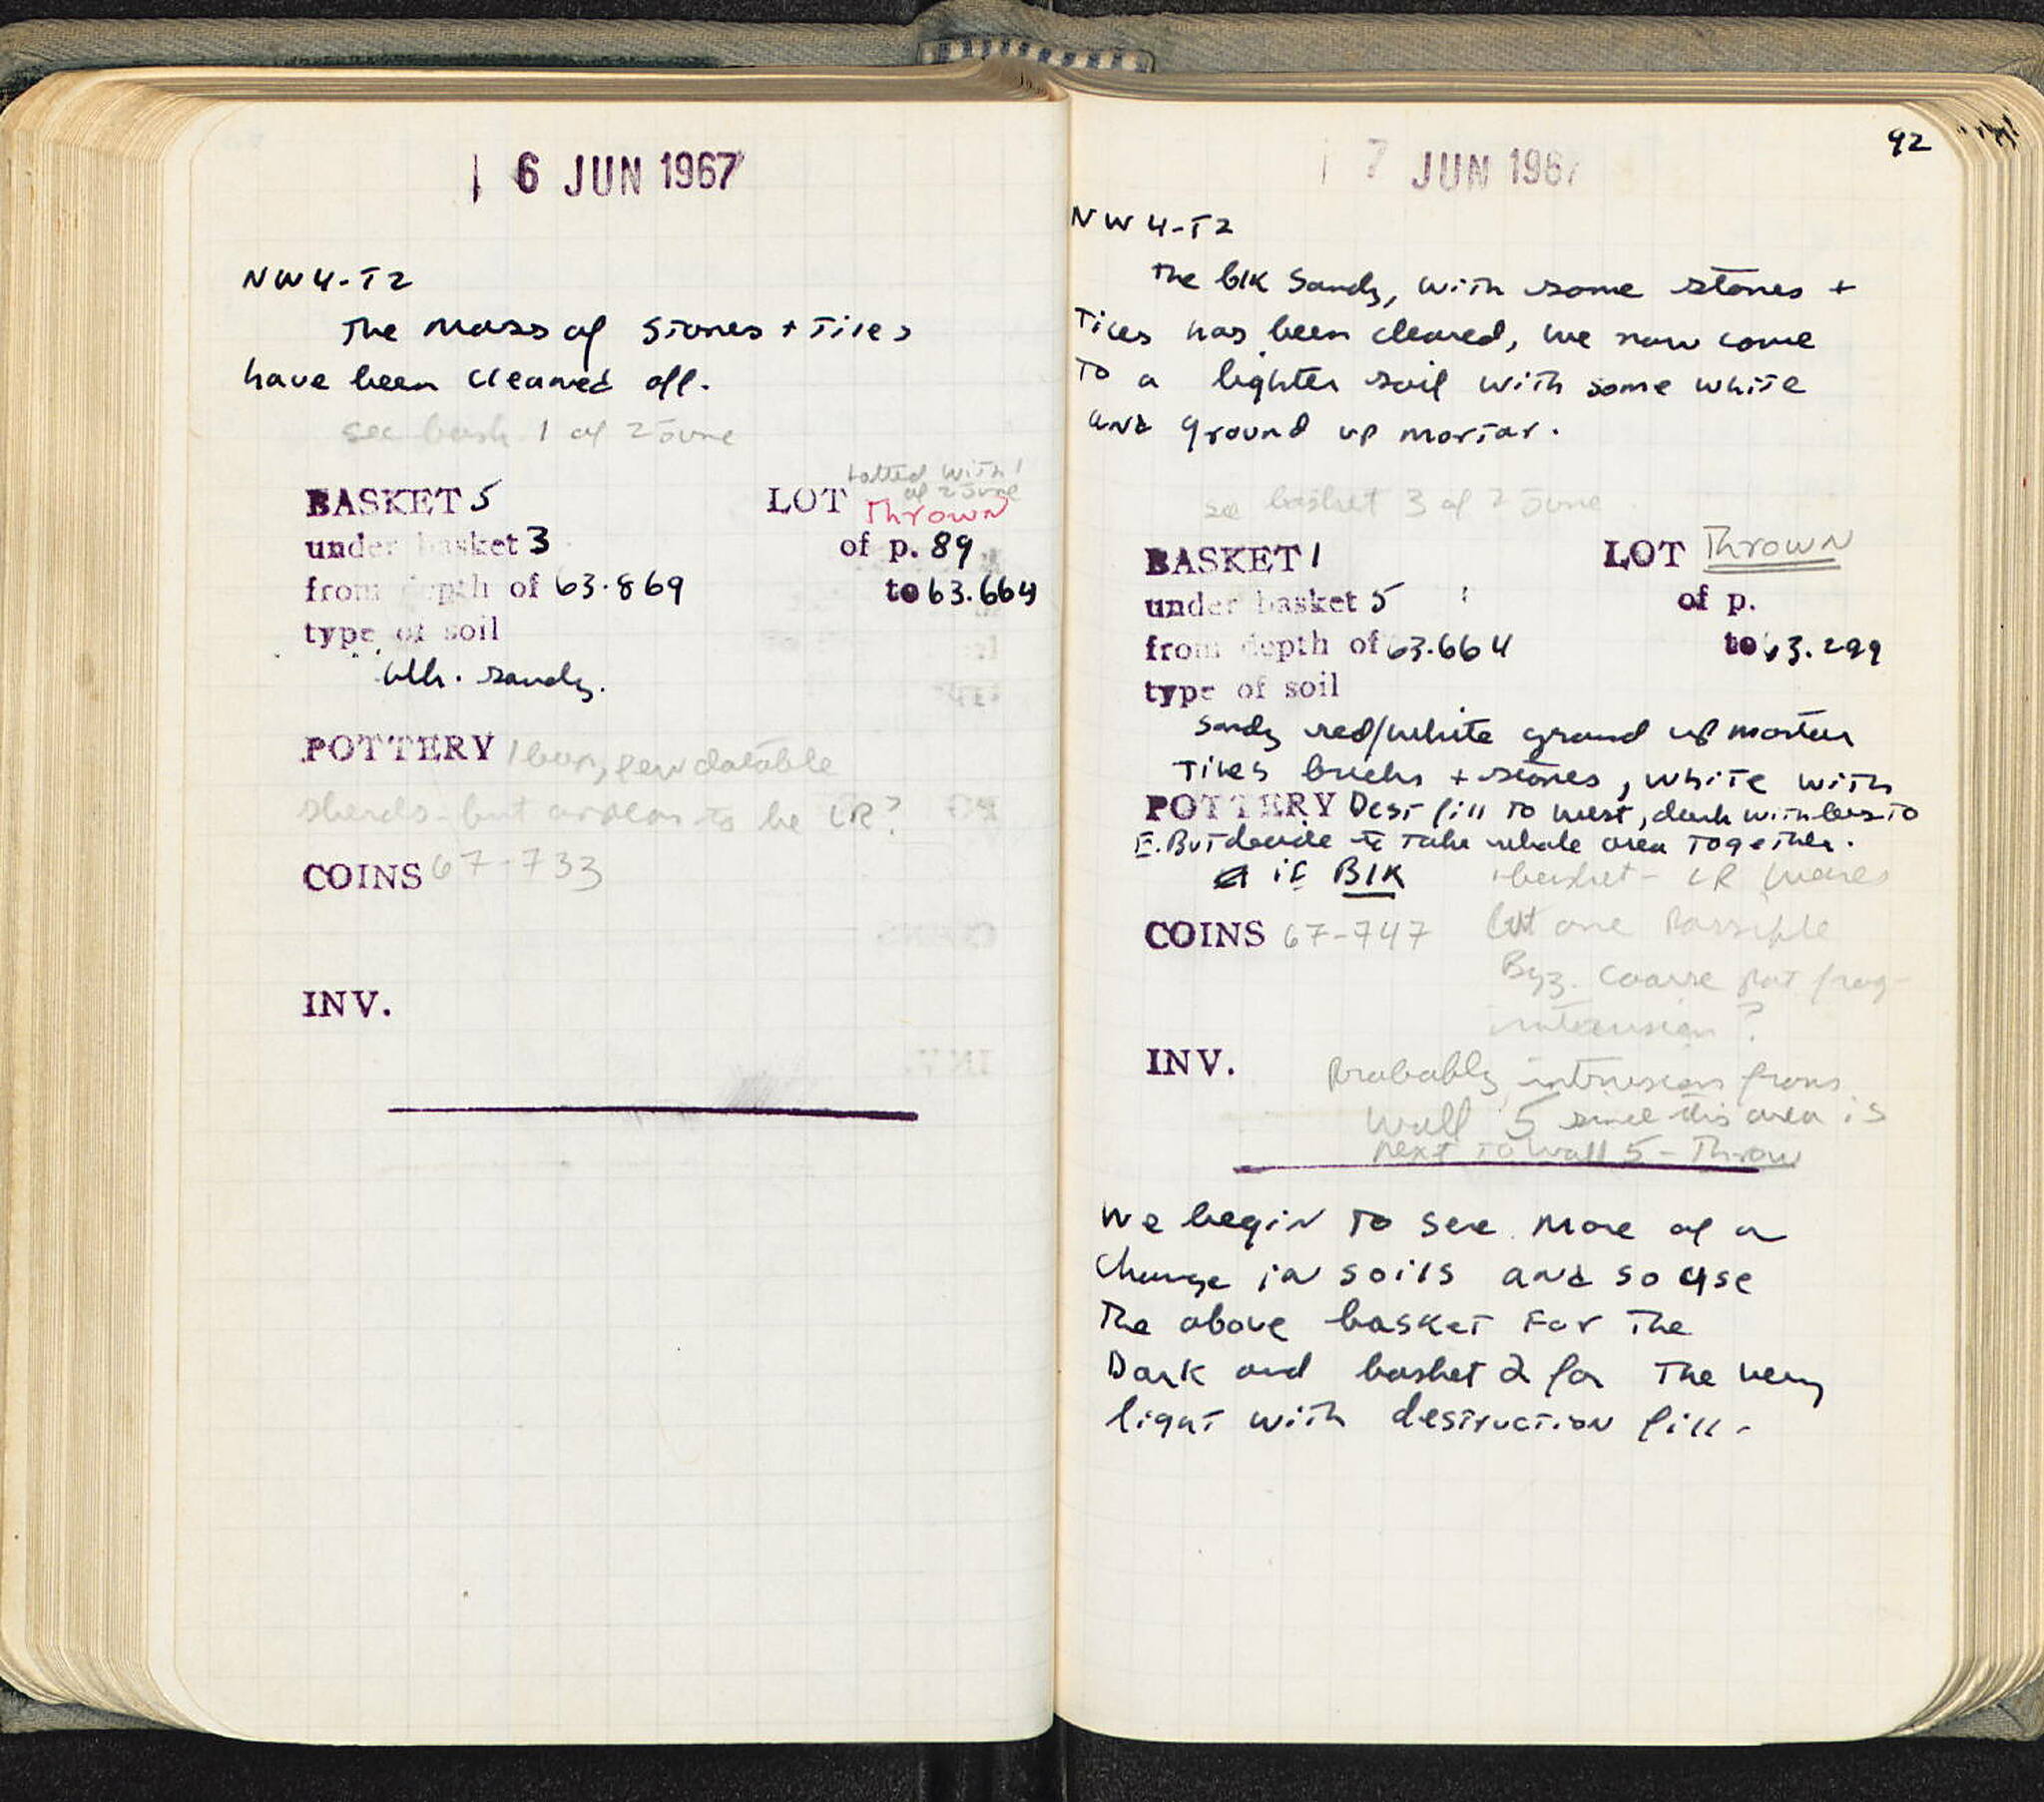 6 JUN 1967
NW4-T2
The mass of stones + tiles
have been cleaned off.
see bask 1 of 2 June
Lotted with 1
of 2 June
BASKET 5 LOT Thrown
under basket 3 of p. 89
from depth of 63.869 to 63.664
type of soil
blk. sandy.
POTTERY few datable
sherds - but appear to be LR?
COINS 67-733
INV.
92
7 JUN 1967
NW4-T2
The blk sandy, with some stones +
Tiles has been cleared, we now come
To a lighter soil with some white
and ground up mortar.
see basket 3 of 2 June
BASKET 1 LOT Thrown
under basket 5 of p.
from depth of 63.664 to 63.299
type of soil
Sandy red/white ground up mortar
Tiles bricks + stones, white with
POTTERY Dest fill to west, dark with less to
E. But decide to take whole area together.
if BLK
1 basket - LR wares
COINS 67-747 but one possible
Byz. coarse pot frag-
intrusion?
INV. Probably intrusion from
Wall 5 since this area is
next to wall 5 - Throw
We begin to see more of a
change in soils and so use
The above basket for the
Dark and basket 2 for the very
light with destruction fill-